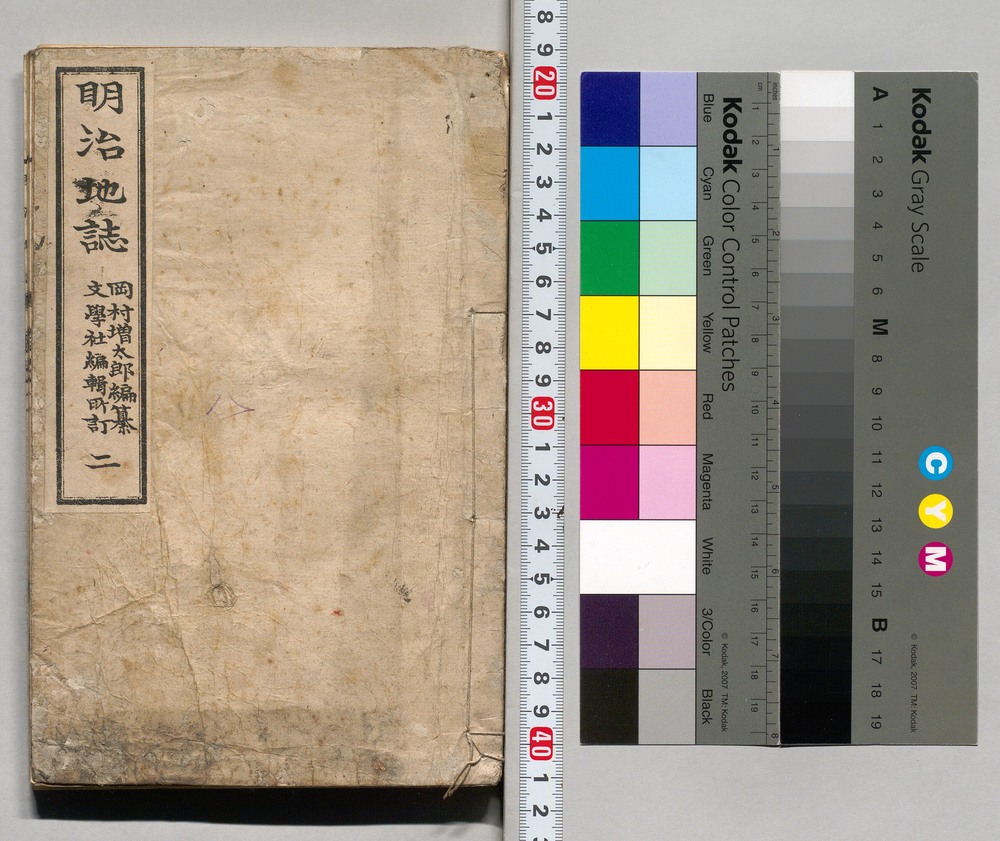 明治地誌
岡村増太郎編纂
文學社編輯所訂
二
8 9 20 1 2 3 4 5 6 7 8 9 30 1 2 3 4 5 6 7 8 9 40 1 2
Kodak Color Control Patches
Blue Cyan Green Yellow Red Magenta White 3/Color Black
cm 1 2 3 4 5 6 7 8 9 10 11 12 13 14 15 16 17 18 19
inches 1 2 3 4 5 6 7 8
© Kodak, 2007 TM: Kodak
Kodak Gray Scale
A 1 2 3 4 5 6 M 8 9 10 11 12 13 14 15 B 17 18 19
C Y M
© Kodak, 2007 TM: Kodak